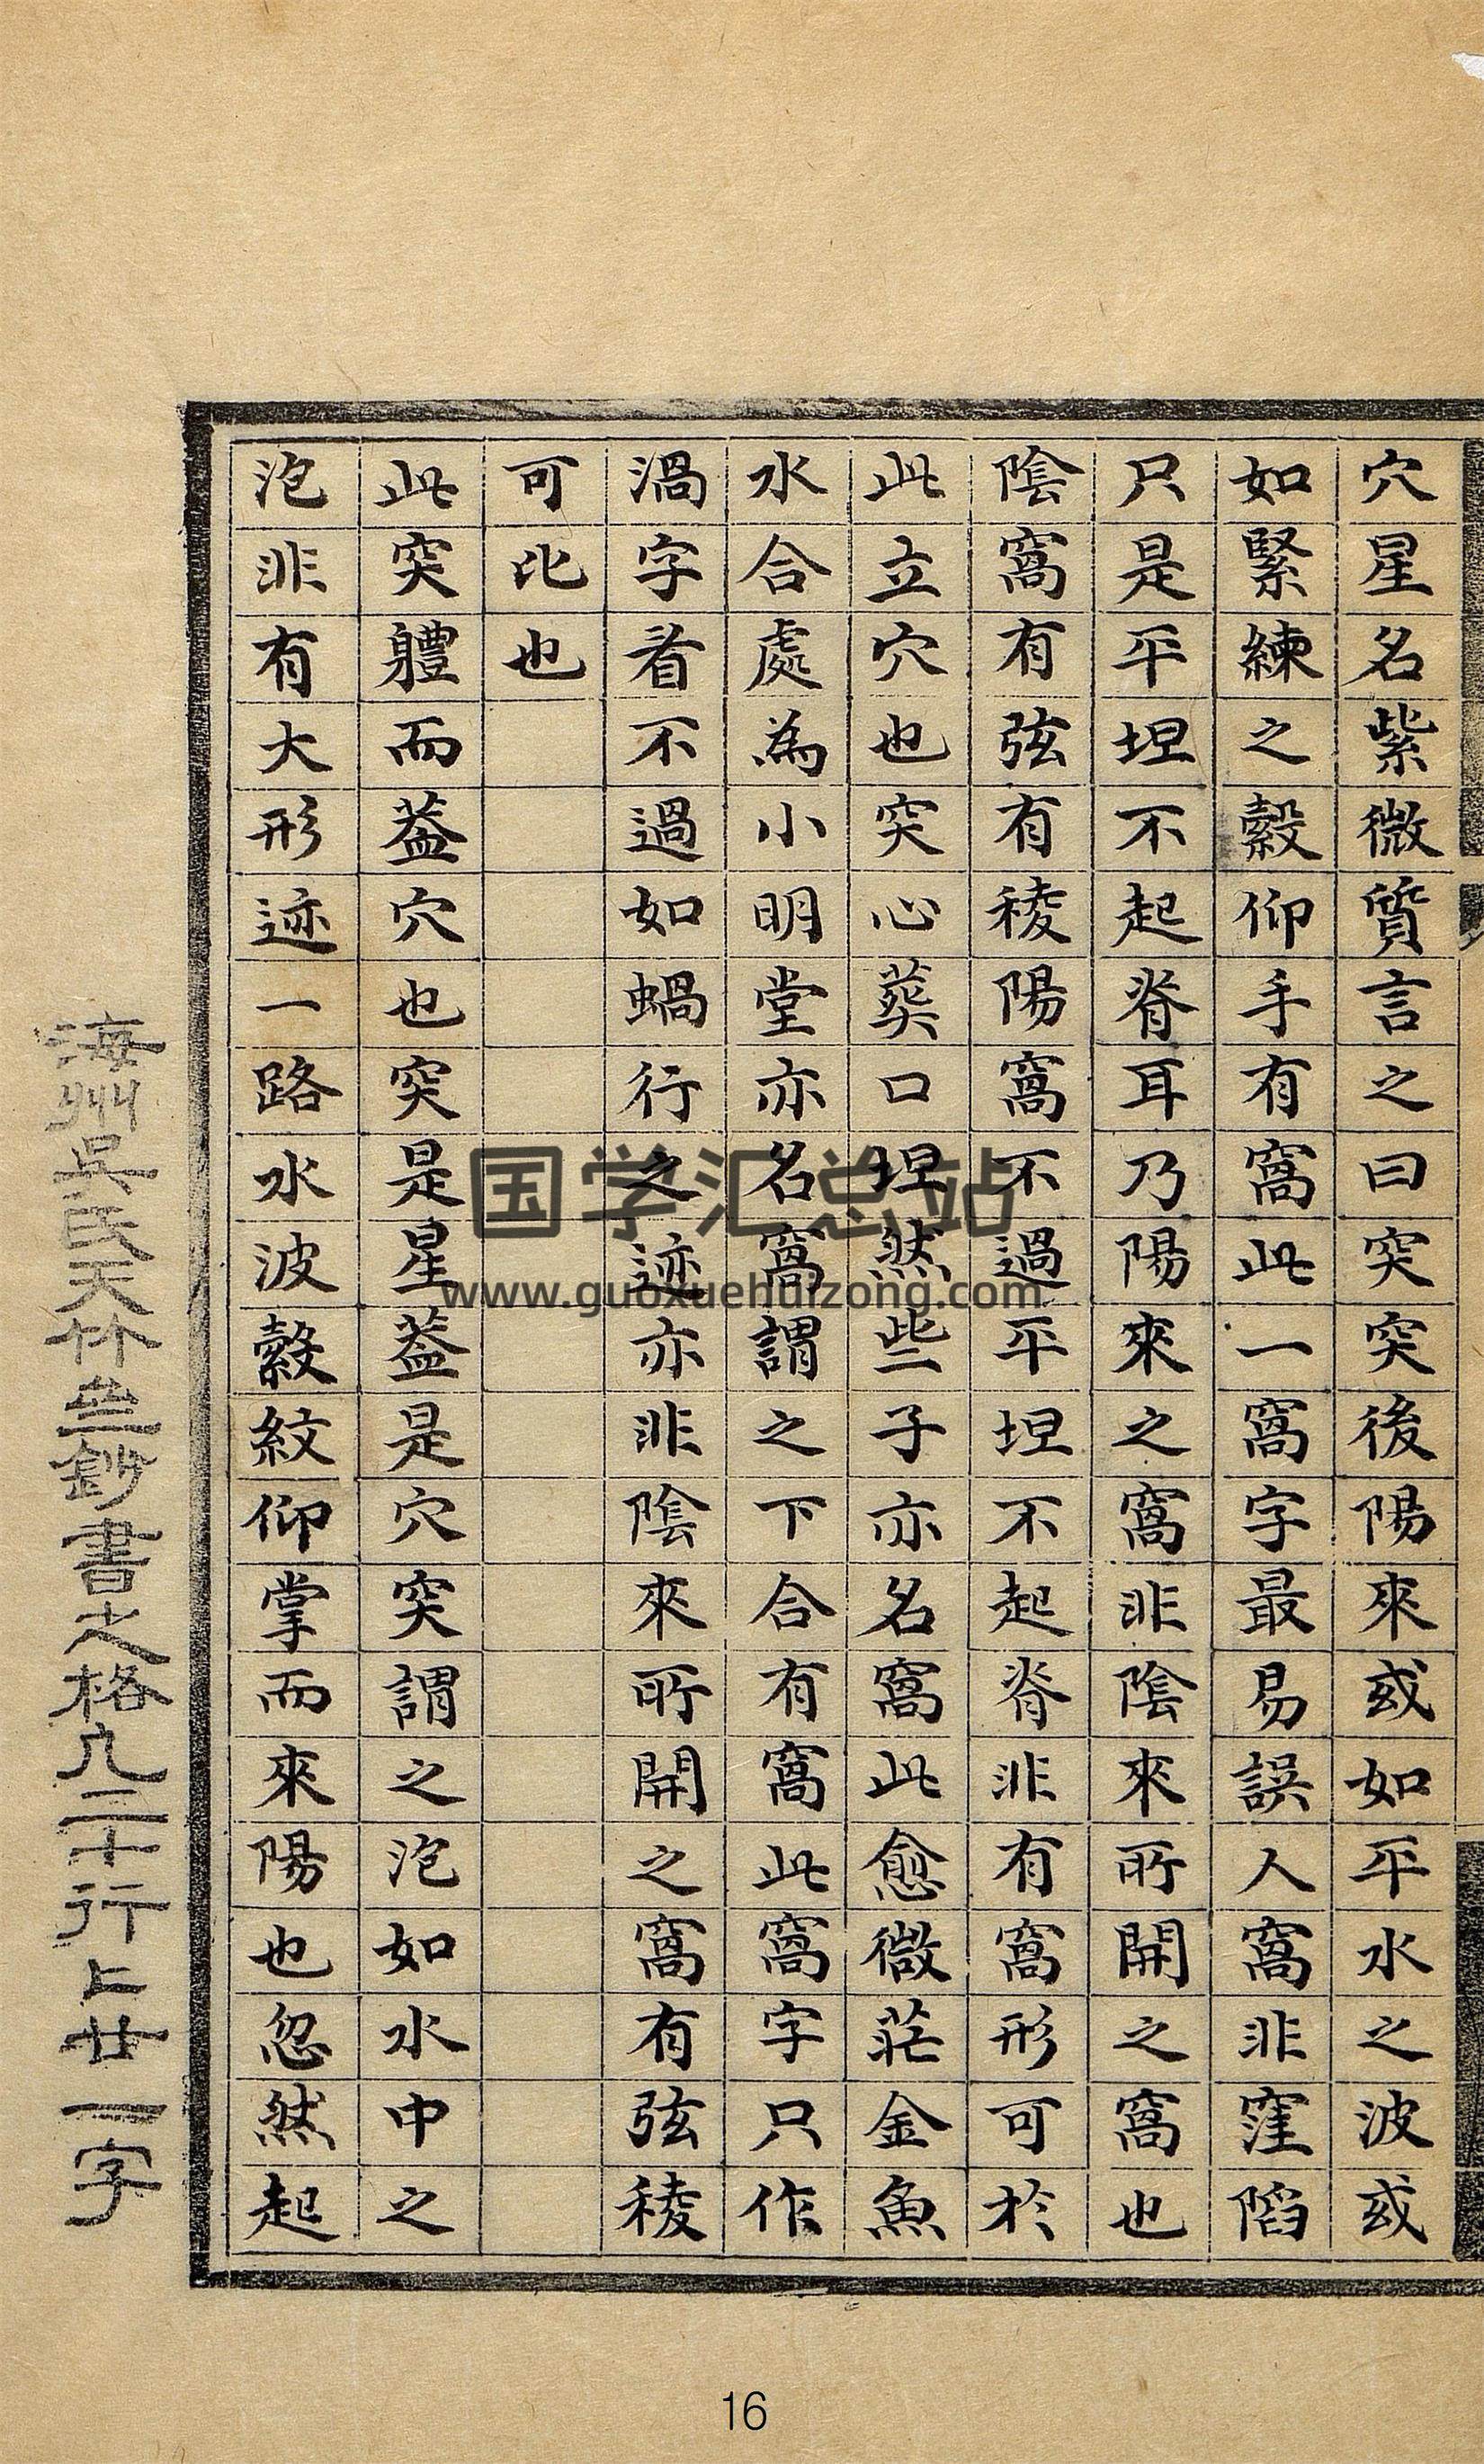 穴星名紫微質言之曰突突後陽來或如平水之波或
如緊練之縠仰手有窩此一窩字最易誤人窩非窪陷
只是平坦不起脊耳乃陽來之窩非陰來所開之窩也
陰窩有弦有稜陽窩不過平坦不起脊非有窩形可於
此立穴也突心葬口坦然些子亦名窩此愈微茫金魚
水合處為小明堂亦名窩謂之下合有窩此窩字只作
渦字看不過如蝸行之迹亦非陰來所開之窩有弦稜
可比也
此突軆而葢穴也突是星葢是穴突謂之泡如水中之
泡非有大形迹一路水波縠紋仰掌而來陽也忽然起
海州吳氏天竹盦鈔書之格凡二十行上廿一字
国学汇总站
www.guoxuehuizong.com
16